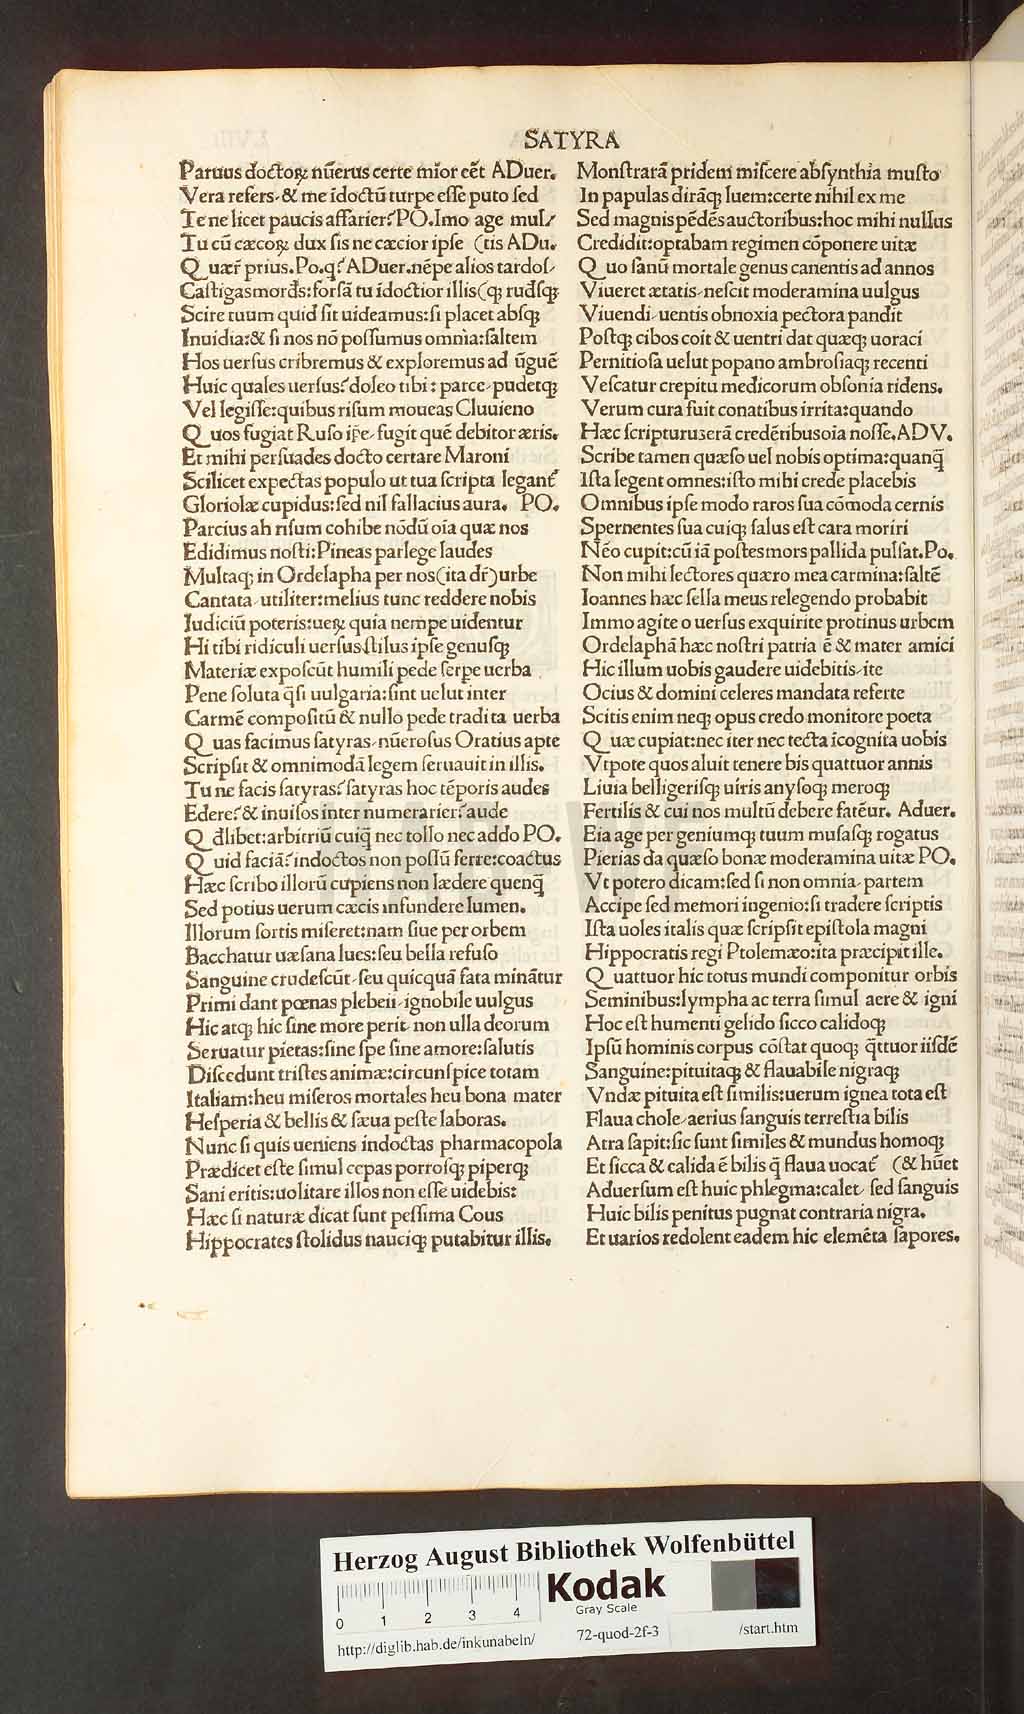 SATYRA
Paruus doctoꝝ nūerus certe mīor cēt ADuer.
Vera refers, & me īdoctū turpe esse puto sed
Te ne licet paucis affarier? PO. Imo age mul/
Tu cū cæcoꝝ dux sis ne cæcior ipse (tis ADu.
Quær̄ prius. Po. q? ADuer. nēpe alios tardos,
Castigas mord̄s: forsā tu īdoctior illis (qꝫ rud̄sqꝫ
Scire tuum quid sit uideamus: si placet absqꝫ
Inuidia: & si nos nō possumus omnia: saltem
Hos uersus cribremus & exploremus ad ūguē
Huic quales uersus? doleo tibi: parce, pudetqꝫ
Vel legisse: quibus risum moueas Cluuieno
Quos fugiat Ruso ip̄e, fugit quē debitor æris.
Et mihi persuades docto certare Maroni
Scilicet expectas populo ut tua scripta legant᷑
Gloriolæ cupidus: sed nil fallacius aura. PO.
Parcius ah risum cohibe nōdū oīa quæ nos
Edidimus nosti: Pineas parlege laudes
Multaqꝫ in Ordelapha per nos (ita dr̄) urbe
Cantata, utiliter: melius tunc reddere nobis
Iudiciū poteris: ueꝝ quia nempe uidentur
Hi tibi ridiculi uersus, stilus ipse genusqꝫ
Materiæ exposcūt humili pede serpe uerba
Pene soluta q̄si uulgaria: sint uelut inter
Carmē compositū & nullo pede tradita uerba
Quas facimus satyras, nūerosus Oratius apte
Scripsit & omnimodā legem seruauit in illis.
Tu ne facis satyras? satyras hoc tēporis audes
Edere? & inuisos inter numerarier? aude
Qd̄libet: arbitriū cuiq̄ nec tollo nec addo PO.
Quid faciā? indoctos non possū ferre: coactus
Hæc scribo illorū cupiens non lædere quenq̄
Sed potius uerum cæcis infundere lumen.
Illorum sortis miseret: nam siue per orbem
Bacchatur uæsana lues: seu bella refuso
Sanguine crudescūt, seu quicquā fata minātur
Primi dant pœnas plebeii, ignobile uulgus
Hic atqꝫ hic sine more perit, non ulla deorum
Seruatur pietas: sine spe sine amore: salutis
Discedunt tristes animæ: circunspice totam
Italiam: heu miseros mortales heu bona mater
Hesperia & bellis & sæua peste laboras.
Nunc si quis ueniens indoctas pharmacopola
Prædicet este simul cepas porrosqꝫ piperqꝫ
Sani eritis: uolitare illos non esse uidebis:
Hæc si naturæ dicat sunt pessima Cous
Hippocrates stolidus nauciqꝫ putabitur illis.
Monstrarā pridem miscere absynthia musto
In papulas dirāqꝫ luem: certe nihil ex me
Sed magnis pēdēs auctoribus: hoc mihi nullus
Credidit: optabam regimen cōponere uitæ
Quo sanū mortale genus canentis ad annos
Viueret ætatis, nescit moderamina uulgus
Viuendi, uentis obnoxia pectora pandit
Postqꝫ cibos coit & uentri dat quæqꝫ uoraci
Pernitiosa uelut popano ambrosiaqꝫ recenti
Vescatur crepitu medicorum obsonia ridens.
Verum cura fuit conatibus irrita: quando
Hæc scripturus erā credētibus oīa nosse. ADV.
Scribe tamen quæso uel nobis optima: quanq̄
Ista legent omnes: isto mihi crede placebis
Omnibus ipse modo raros sua cōmoda cernis
Spernentes sua cuiqꝫ salus est cara moriri
Nēo cupit: cū iā postes mors pallida pulsat. Po.
Non mihi lectores quæro mea carmina: saltē
Ioannes hæc sella meus relegendo probabit
Immo agite o uersus exquirite protinus urbem
Ordelaphā hæc nostri patria ē & mater amici
Hic illum uobis gaudere uidebitis, ite
Ocius & domini celeres mandata referte
Scitis enim neqꝫ opus credo monitore poeta
Quæ cupiat: nec iter nec tecta īcognita uobis
Vtpote quos aluit tenere bis quattuor annis
Liuia belligerisqꝫ uiris anysoqꝫ meroqꝫ
Fertilis & cui nos multū debere fatēur. Aduer.
Eia age per geniumqꝫ tuum musasqꝫ rogatus
Pierias da quæso bonæ moderamina uitæ PO.
Vt potero dicam: sed si non omnia, partem
Accipe sed memori ingenio: si tradere scriptis
Ista uoles italis quæ scripsit epistola magni
Hippocratis regi Ptolemæo: ita præcipit ille.
Quattuor hic totus mundi componitur orbis
Seminibus: lympha ac terra simul aere & igni
Hoc est humenti gelido sicco calidoqꝫ
Ipsū hominis corpus cōstat quoqꝫ q̄ttuor iisdē
Sanguine: pituitaqꝫ & flaua bile nigraqꝫ
Vndæ pituita est similis: uerum ignea tota est
Flaua chole, aerius sanguis terrestia bilis
Atra sapit: sic sunt similes & mundus homoqꝫ
Et sicca & calida ē bilis q̄ flaua uocat᷑ (& hūet
Aduersum est huic phlegma: calet, sed sanguis
Huic bilis penitus pugnat contraria nigra.
Et uarios redolent eadem hic elemēta sapores.
HAB-WF
Herzog August Bibliothek Wolfenbüttel
0 1 2 3 4
Kodak
Gray Scale
http://diglib.hab.de/inkunabeln/ 72-quod-2f-3 /start.htm